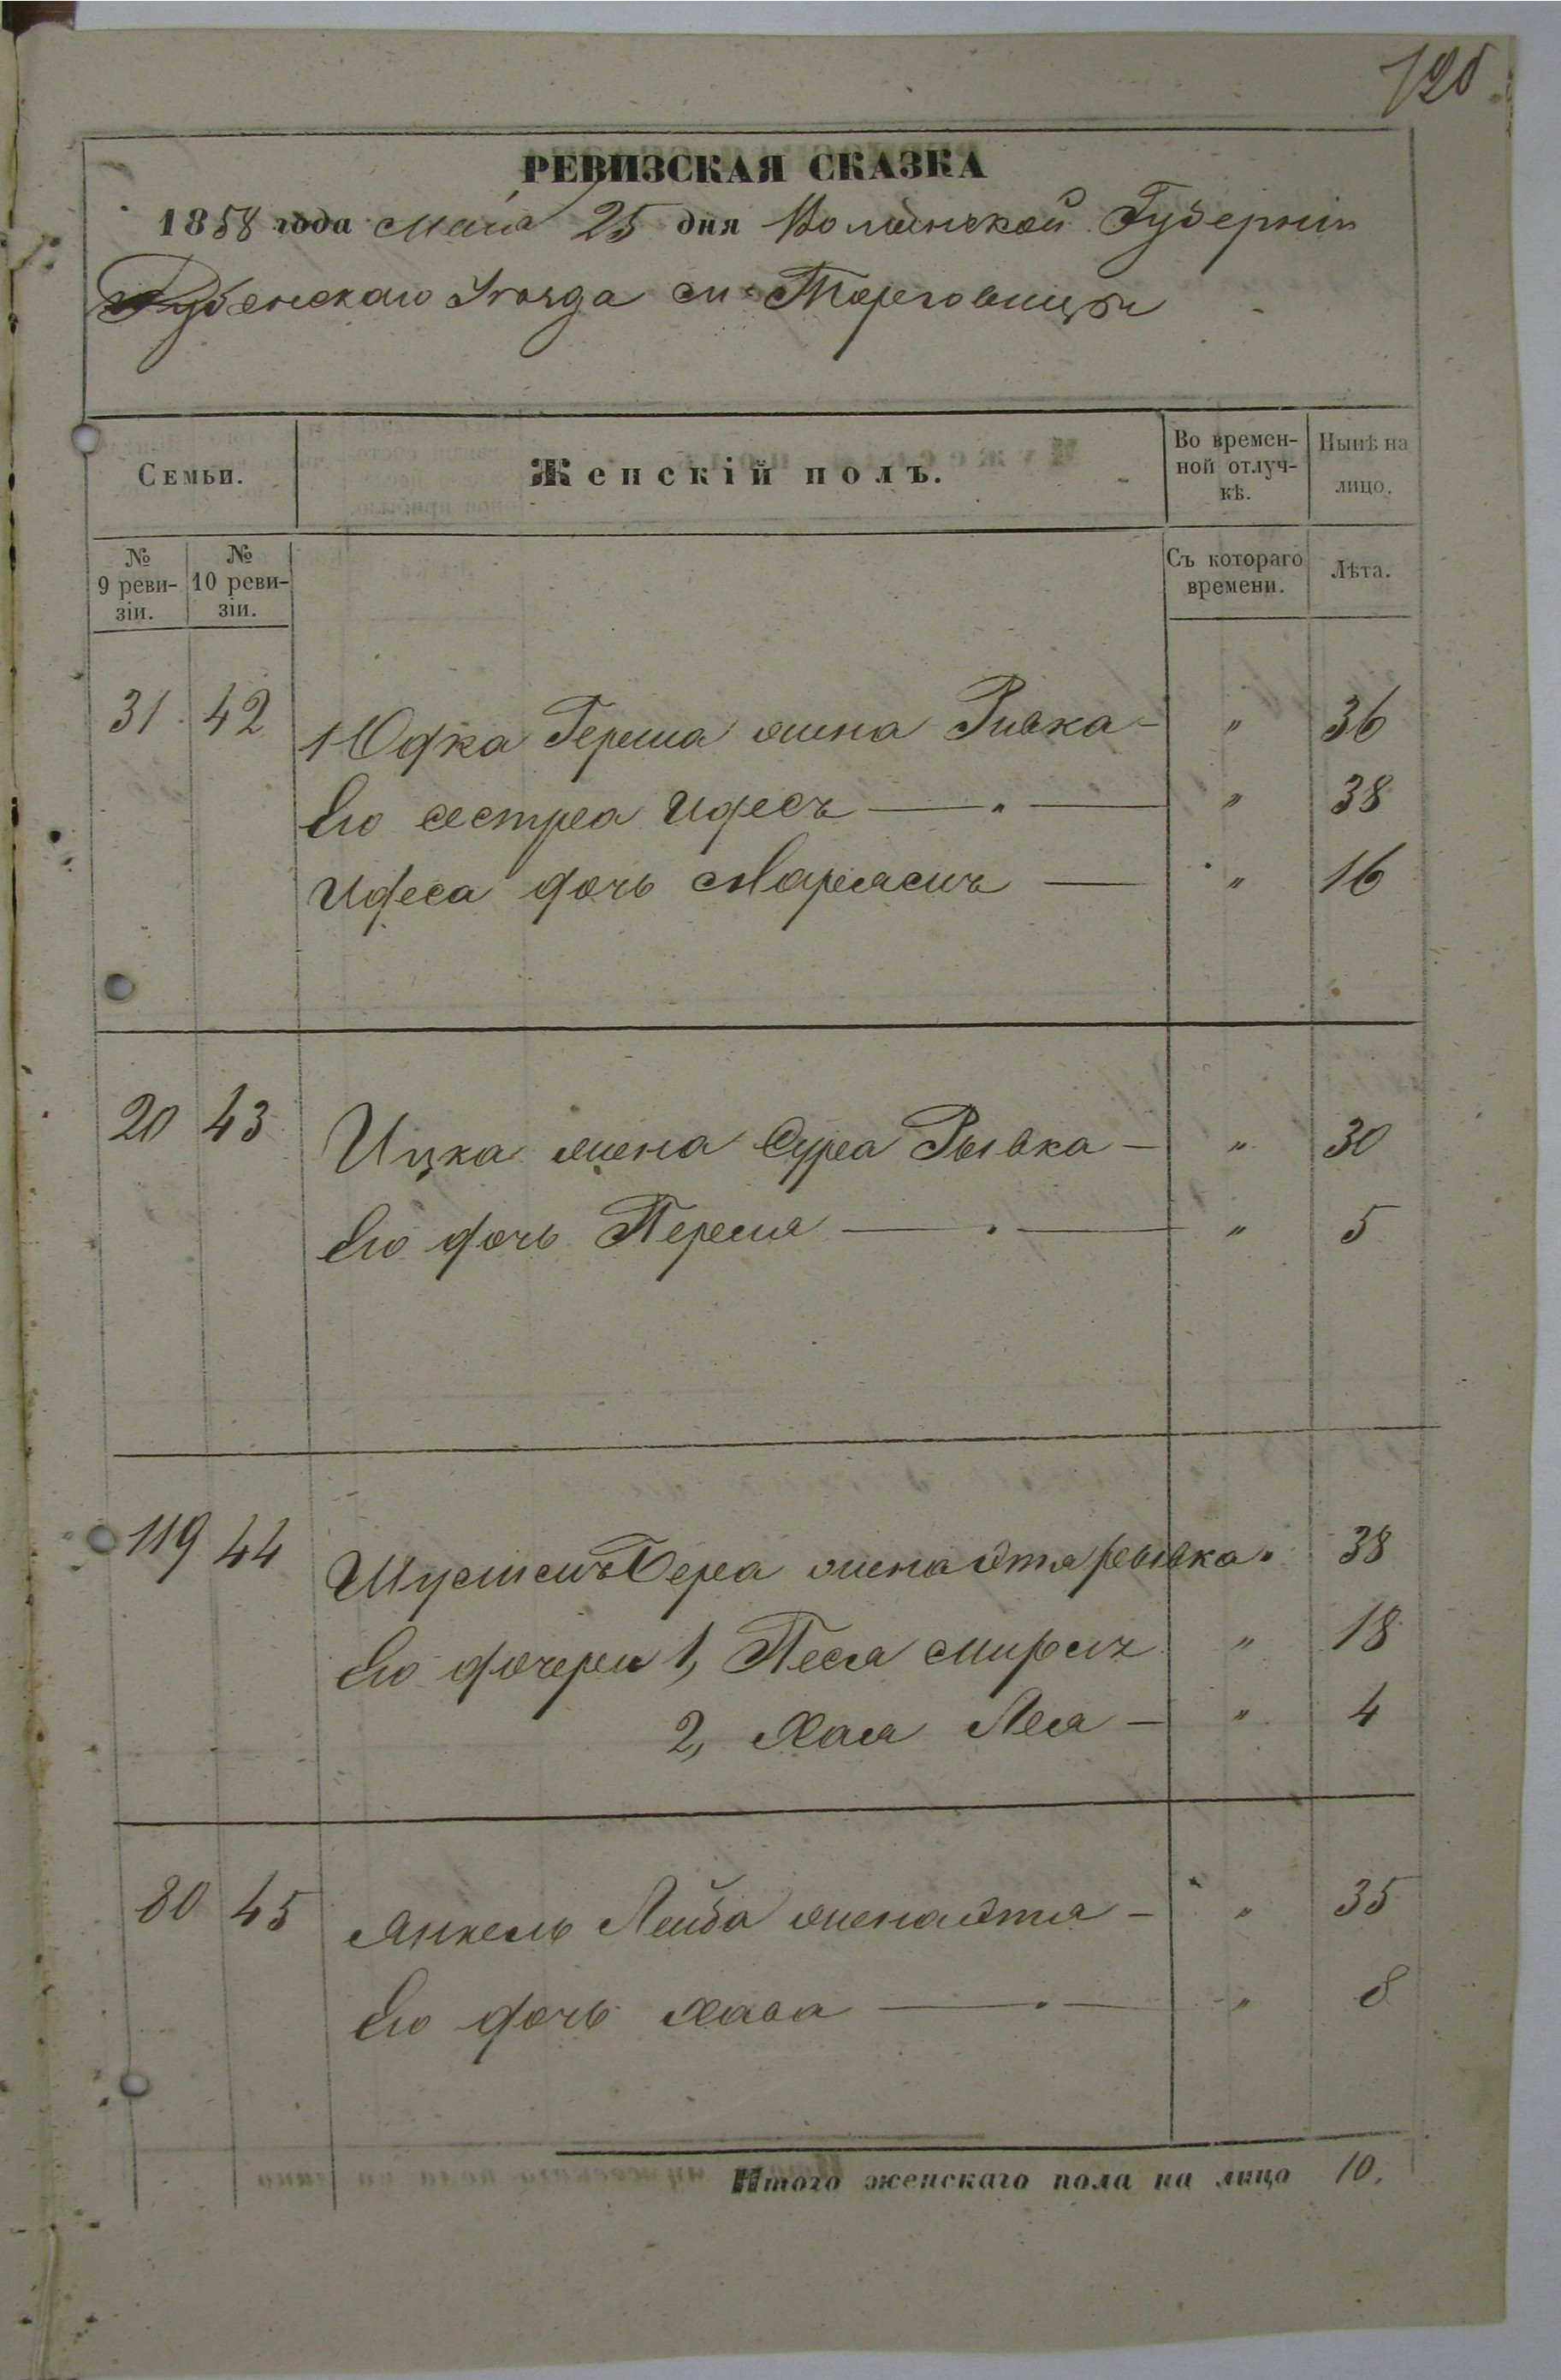 120.
РЕВИЗСКАЯ СКАЗКА
1858 года Мая 25 дня Волынской Губерніи
Дубенскаго Уѣзда м. Торговицы
Семьи. Женскій полъ. Во времен- Нынѣ на
ной отлуч- лицо.
кѣ.
№ № Съ котораго Лѣта.
9 реви- 10 реви- времени.
зіи. зіи.
31 42 Юдка Герша жена Ривка — " 36
Его сестра Идесъ — " 38
Идеса дочь — " 16
20 43 Ицка жена Сура Рывка — " 30
Его дочь Перля — " 5
119 44 Бера жена Этя Рывка " 38
Его дочери 1, Песя " 18
2, Хая Лея — " 4
80 45 Янкель Лейба жена Этля — " 35
Его дочь Хава — " 8
Итого женскаго пола на лицо 10.